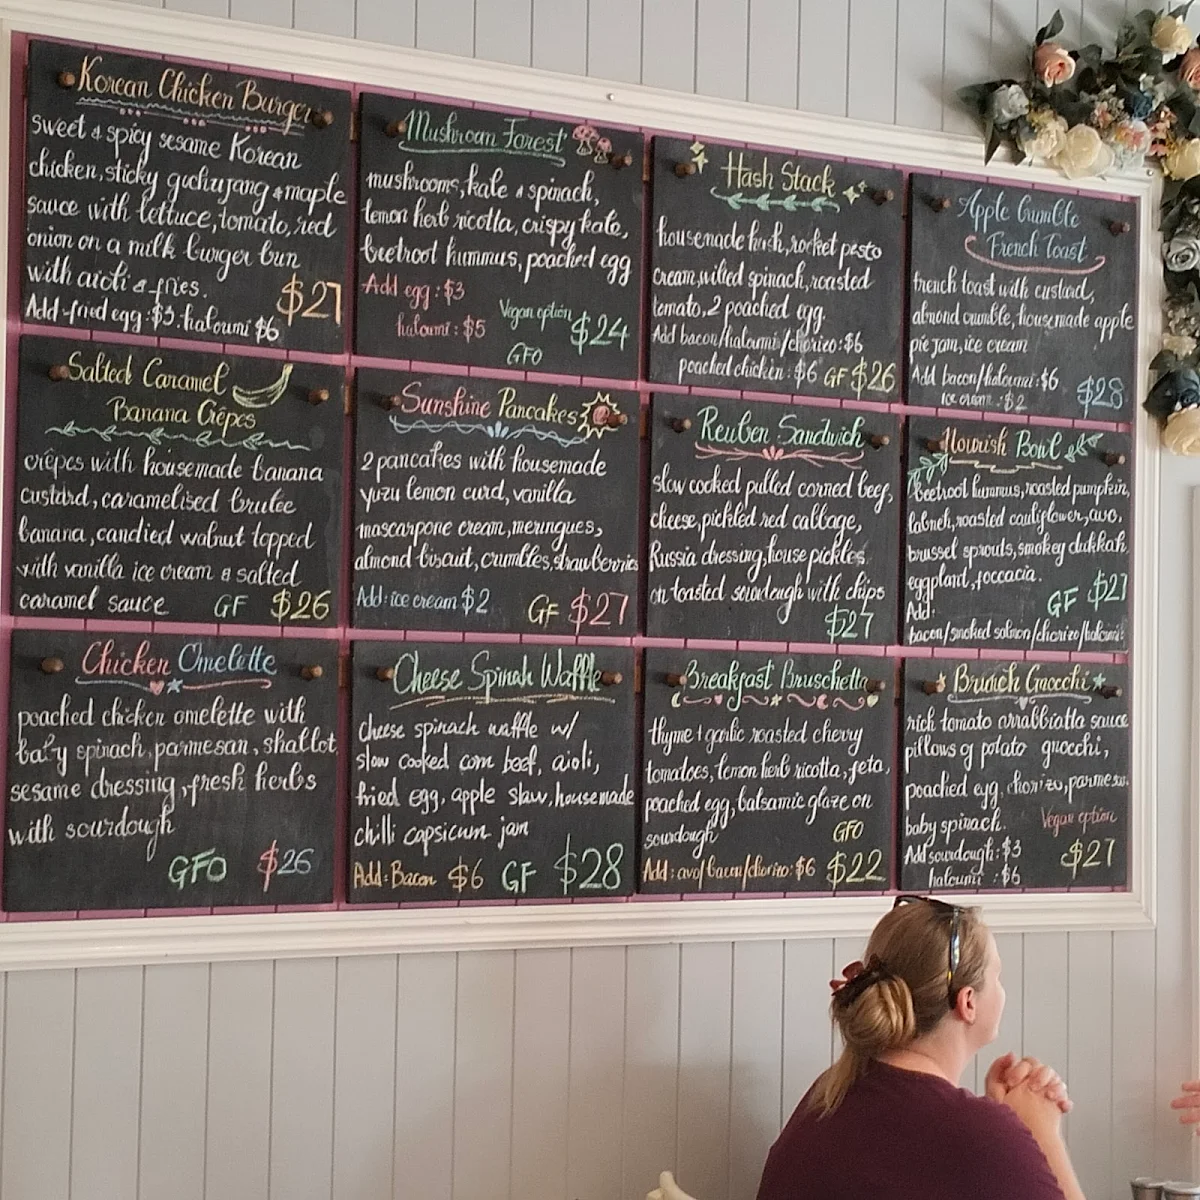 Korean Chicken Burger
sweet & spicy sesame Korean
chicken, sticky guchujang & maple
sauce with lettuce, tomato, red
onion on a milk burger bun
with aioli & fries. $27
Add-fried egg: $3. haloumi $6
Mushroom Forest
mushrooms, kale & spinach,
lemon herb ricotta, crispy kale,
beetroot hummus, poached egg
Add egg: $3
haloumi: $5
Vegan option $24
GFO
Hash Stack
housemade hash, rocket pesto
cream, wilted spinach, roasted
tomato, 2 poached egg
Add bacon/haloumi/chorizo: $6
poached chicken: $6 GF $26
Apple Crumble
French Toast
french toast with custard,
almond crumble, housemade apple
pie jam, ice cream
Add bacon/haloumi: $6
ice cream: $2 $28
Salted Caramel
Banana Crêpes
crêpes with housemade banana
custard, caramelised brulee
banana, candied walnut topped
with vanilla ice cream & salted
caramel sauce GF $26
Sunshine Pancakes
2 pancakes with housemade
yuzu lemon curd, vanilla
mascarpone cream, meringues,
almond biscuit, crumbles, strawberries
Add: ice cream $2 GF $27
Reuben Sandwich
slow cooked pulled corned beef,
cheese, pickled red cabbage,
Russia dressing, house pickles
on toasted sourdough with chips
$27
Nourish Bowl
beetroot hummus, roasted pumpkin,
labneh, roasted cauliflower, avo,
brussel sprouts, smokey dukkah,
eggpland, foccacia.
GF $27
Add:
bacon/smoked salmon/chorizo/haloumi:
Chicken Omelette
poached chicken omelette with
baby spinach, parmesan, shallot,
sesame dressing, fresh herbs
with sourdough
GFO $26
Cheese Spinah Waffle
cheese spinach waffle w/
slow cooked corn beef, aioli,
fried egg, apple slaw, housemade
chilli capsicum jam
Add: Bacon $6 GF $28
Breakfast Bruschetta
thyme & garlic roasted cherry
tomatoes, lemon herb ricotta, feta,
poached egg, balsamic glaze on
sourdough GFO
Add: avo/bacon/chorizo: $6 $22
Brunch Gnocchi
rich tomato arrabbiatta sauce
pillows of potato gnocchi,
poached egg, chorizo, parmesan,
baby spinach. Vegan option
Add sourdough: $3 $27
haloumi: $6